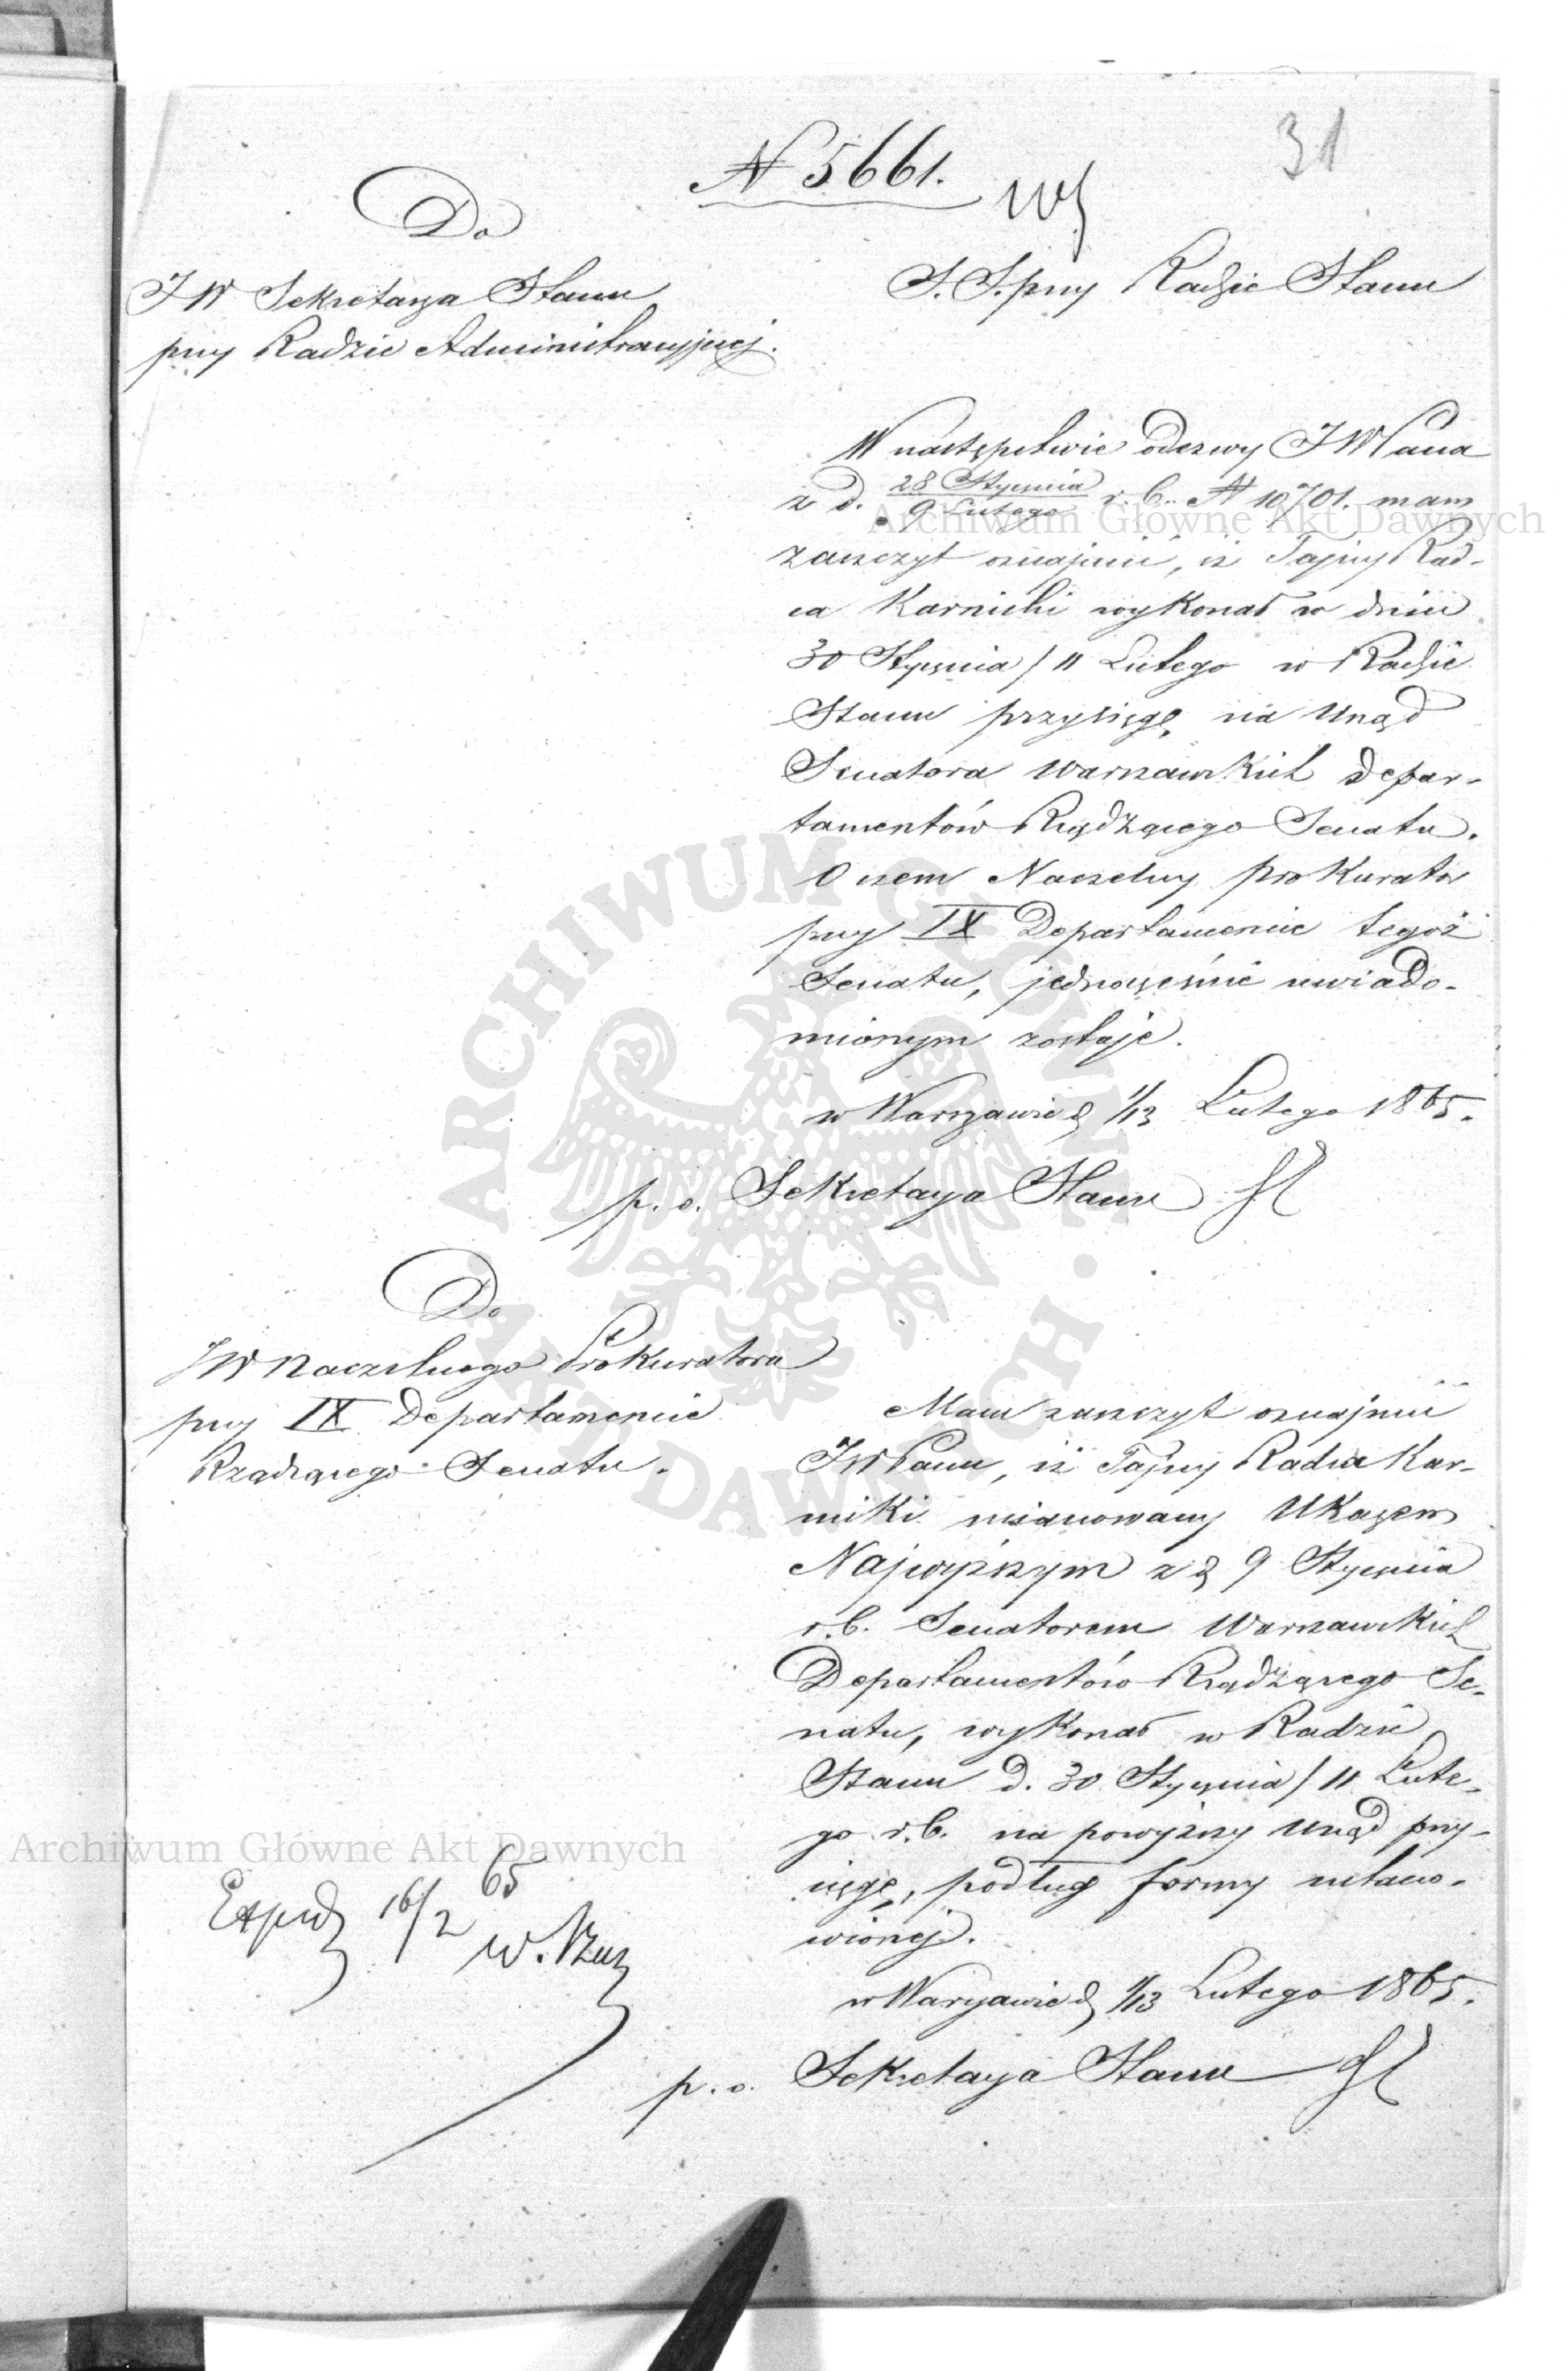 31
N 5661.
Do
JW Sekretarza Stanu
przy Radzie Administracyjnej.
S. S. przy Radzie Stanu
W następstwie odezwy JWPana
z d. 28 Stycznia / 9 Lutego r. b. N 10701. mam
zaszczyt oznajmić, iż Tajny Rad-
ca Karnicki wykonał w dniu
30 Stycznia / 11 Lutego w Radzie
Stanu przysięgę na Urząd
Senatora Warszawskich Depar-
tamentów Rządzącego Senatu.
O czem Naczelny prokurator
przy IX Departamencie tegoż
Senatu, jednocześnie uwiado-
mionym zostaje.
w Warszawie d 1/13 Lutego 1865.
p. o. Sekretarza Stanu
Do
JW Naczelnego Prokuratora
przy IX Departamencie
Rządzącego Senatu.
Mam zaszczyt oznajmić
JWPanu, iż Tajny Radca Kar-
nicki mianowany Ukazem
Najwyższym z d 9 Stycznia
r. b. Senatorem Warszawskich
Departamentów Rządzącego Se-
natu, wykonał w Radzie
Stanu d. 30 Stycznia / 11 Lute-
go r. b. na powyższy Urząd przy-
sięgę, podług formy ustano-
wionej.
w Warszawie d 1/13 Lutego 1865.
p. o. Sekretarza Stanu
Exped 16/2 65
Archiwum Główne Akt Dawnych
Archiwum Główne Akt Dawnych
ARCHIWUM GŁÓWNE
AKT DAWNYCH